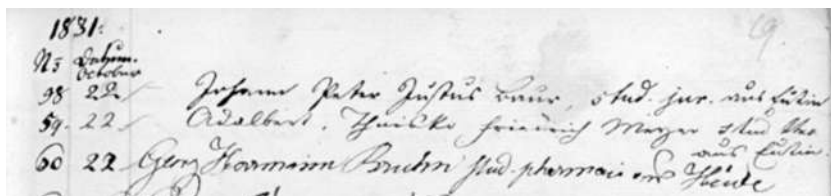 1831. 19.
No Datum.
October
98 22 Johann Peter Justus Baur, stud. jur. aus Eutin
59. 22 Adalbert Friedrich Meyer stud
aus Eutin
60 22 Georg Hermann Bruhn stud. pharmac aus Heide